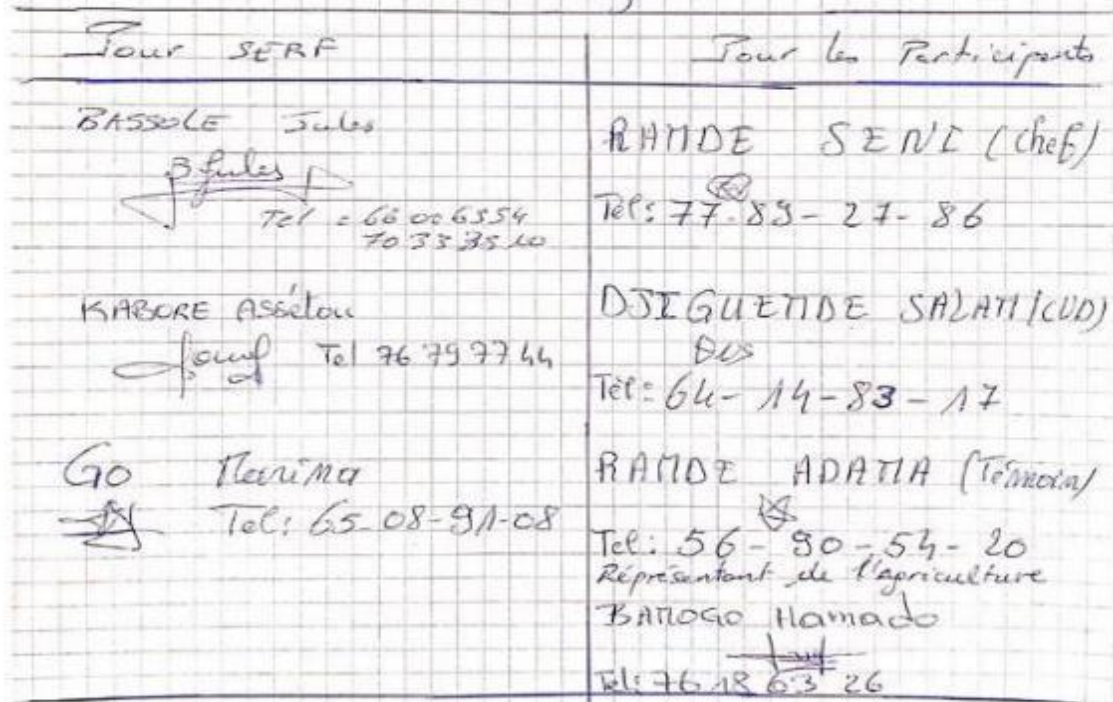 Pour SERF
BASSOLE Jules
B Jules
Tel = 66 00 63 54
70 33 35 10
KABORE Assétou
Tel 76 79 77 44
GO Marina
Tel: 65-08-91-08
Pour les Participants
RAMDE SENI (chef)
Tel: 77-89-27-86
DJIGUEMDE SALAM (CVD)
Tel: 64-14-83-17
RAMDE ADAMA (Témoin)
Tel: 56-90-54-20
Réprésentant de l'agriculture
BAMOGO Hamado
Tel: 76 18 63 26